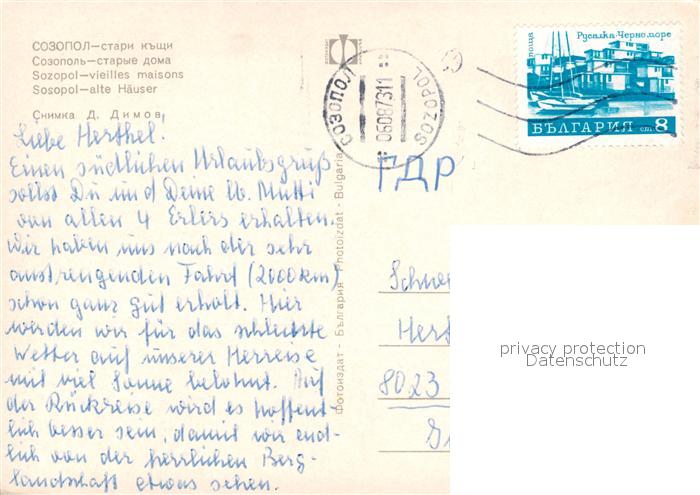 СОЗОПОЛ—стари къщи
Созополь—старые дома
Sozopol—vieilles maisons
Sosopol—alte Häuser
Снимка Д. Димов
Liebe Herthel!
Einen südlichen Urlaubsgruß
sollst Du und Deine lb. Mutti
von allen 4 Erlers erhalten.
Wir haben uns nach der sehr
anstrengenden Fahrt (2000 km)
schon ganz gut erholt. Hier
werden wir für das schlechte
Wetter auf unserer Herreise
mit viel Sonne belohnt. Auf
der Rückreise wird es hoffent-
lich besser sein, damit wir end-
lich von der herrlichen Berg-
landschaft etwas sehen.
Фотоиздат - България - Photoizdat - Bulgaria
СОЗОПОЛ
06087311
SOZOPOL
поща
Русалка-Черно море
БЪЛГАРИЯ ст. 8
ГДР
Schwe
Herth
8023
privacy protection
Datenschutz